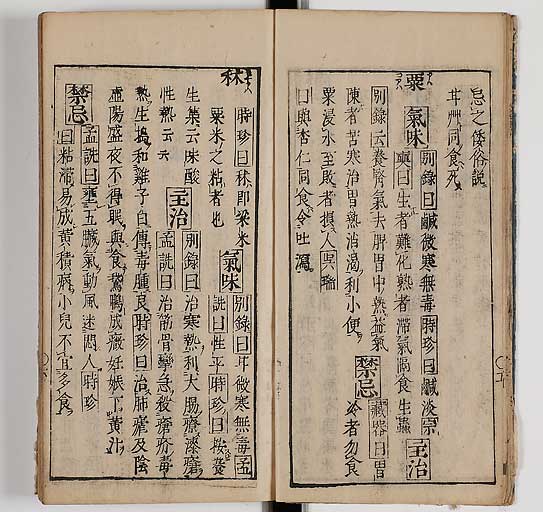 忌之倭俗説
甘艸同食死
粟 氣味 別錄曰鹹微寒無毒時珍曰鹹淡宗
奭曰生者難化熟者滯氣隔食生蟲 主治
別錄云養腎氣去脾胃中熱益氣
陳者苦寒治胃熱消渴利小便
禁忌 藏器曰胃冷者勿食
粟浸水至敗者損人
曰與杏仁同食令吐瀉
秫
時珍曰秫即粟米
粟米之粘者也 氣味 別錄曰甘微寒無毒孟
詵曰性平時珍曰按養
生集云味酸
性熱云云 主治 別錄曰治寒熱利大腸療漆瘡
孟詵曰治筋骨攣急殺瘡疥毒
熱生搗和雞子白傅毒腫良時珍曰治肺瘧及陰
虛陽盛夜不得眠與食鵞鴨成癥妊娠下黃汁
禁忌 孟詵曰壅五臟氣動風迷悶人時珍
曰粘滯易成黃積病小兒不宜多食